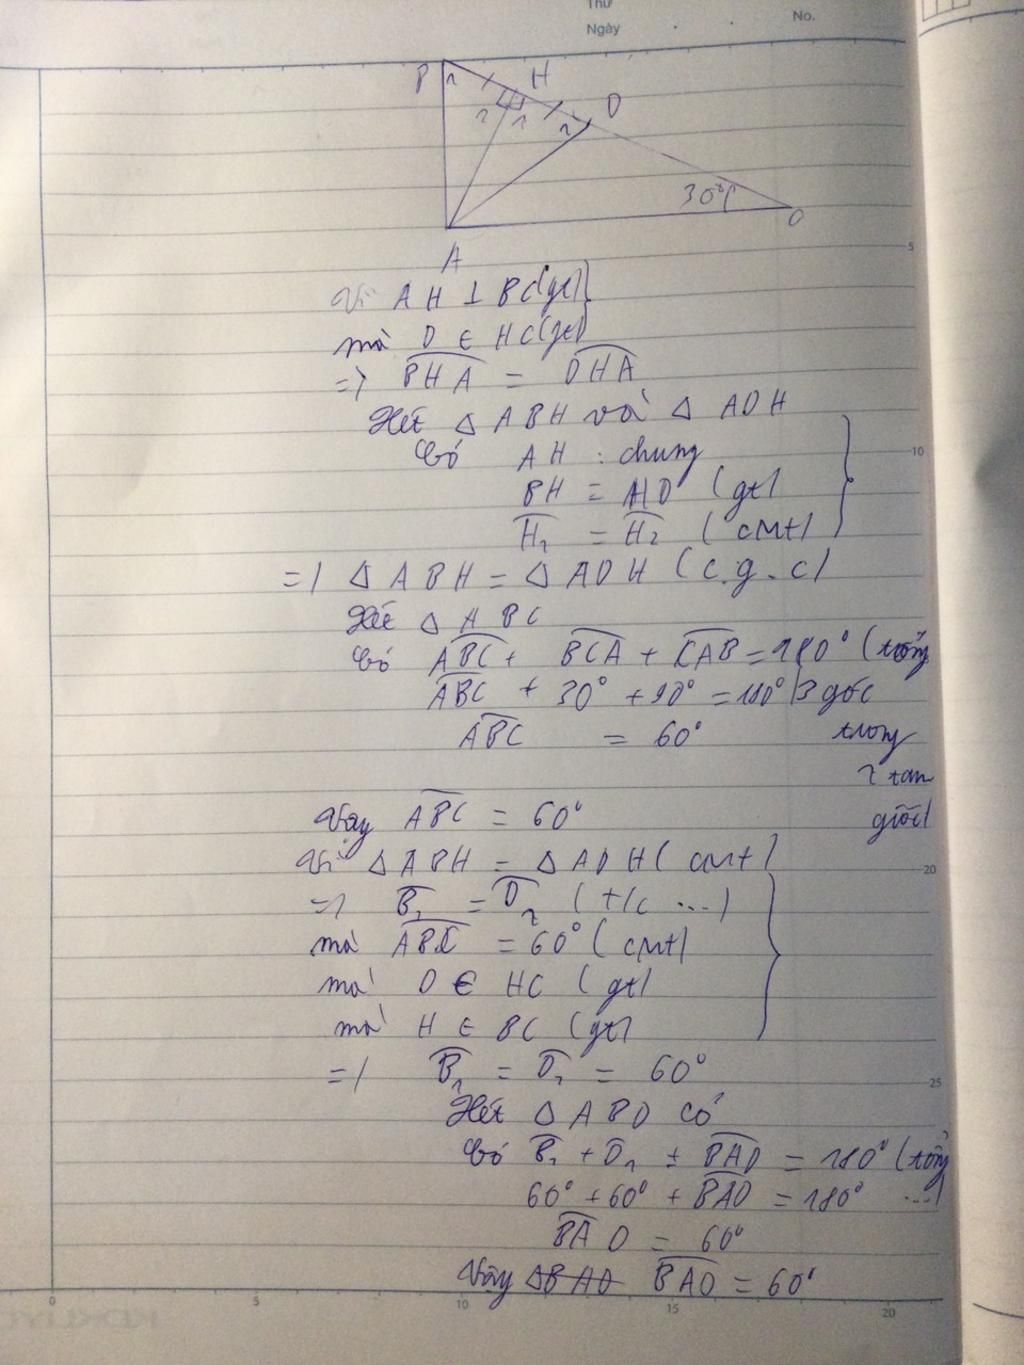 Thứ
Ngày
No.
B 1 H D
2 1 1
30° C
A
Vì AH ⊥ BC (gt)
mà D ∈ HC (gt)
=> BHA = DHA
Xét Δ ABH và Δ ADH
Có AH : chung
BH = HD (gt)
H1 = H2 (cmt)
=> Δ ABH = Δ ADH (c.g.c)
Xét Δ ABC
Có ABC + BCA + CAB = 180° (tổng
ABC + 30° + 90° = 180° 3 góc
ABC = 60° trong
1 tam
Vậy ABC = 60° giác)
Vì Δ ABH = Δ ADH (cmt)
=> B1 = D1 (t/c ...)
mà ABC = 60° (cmt)
mà D ∈ HC (gt)
mà H ∈ BC (gt)
=> B1 = D1 = 60°
Xét Δ ABD có
Có B1 + D1 + BAD = 180° (tổng
60° + 60° + BAD = 180° ...)
BAD = 60°
Vậy BAD = 60°
5
10
20
25
0 5 10 15 20